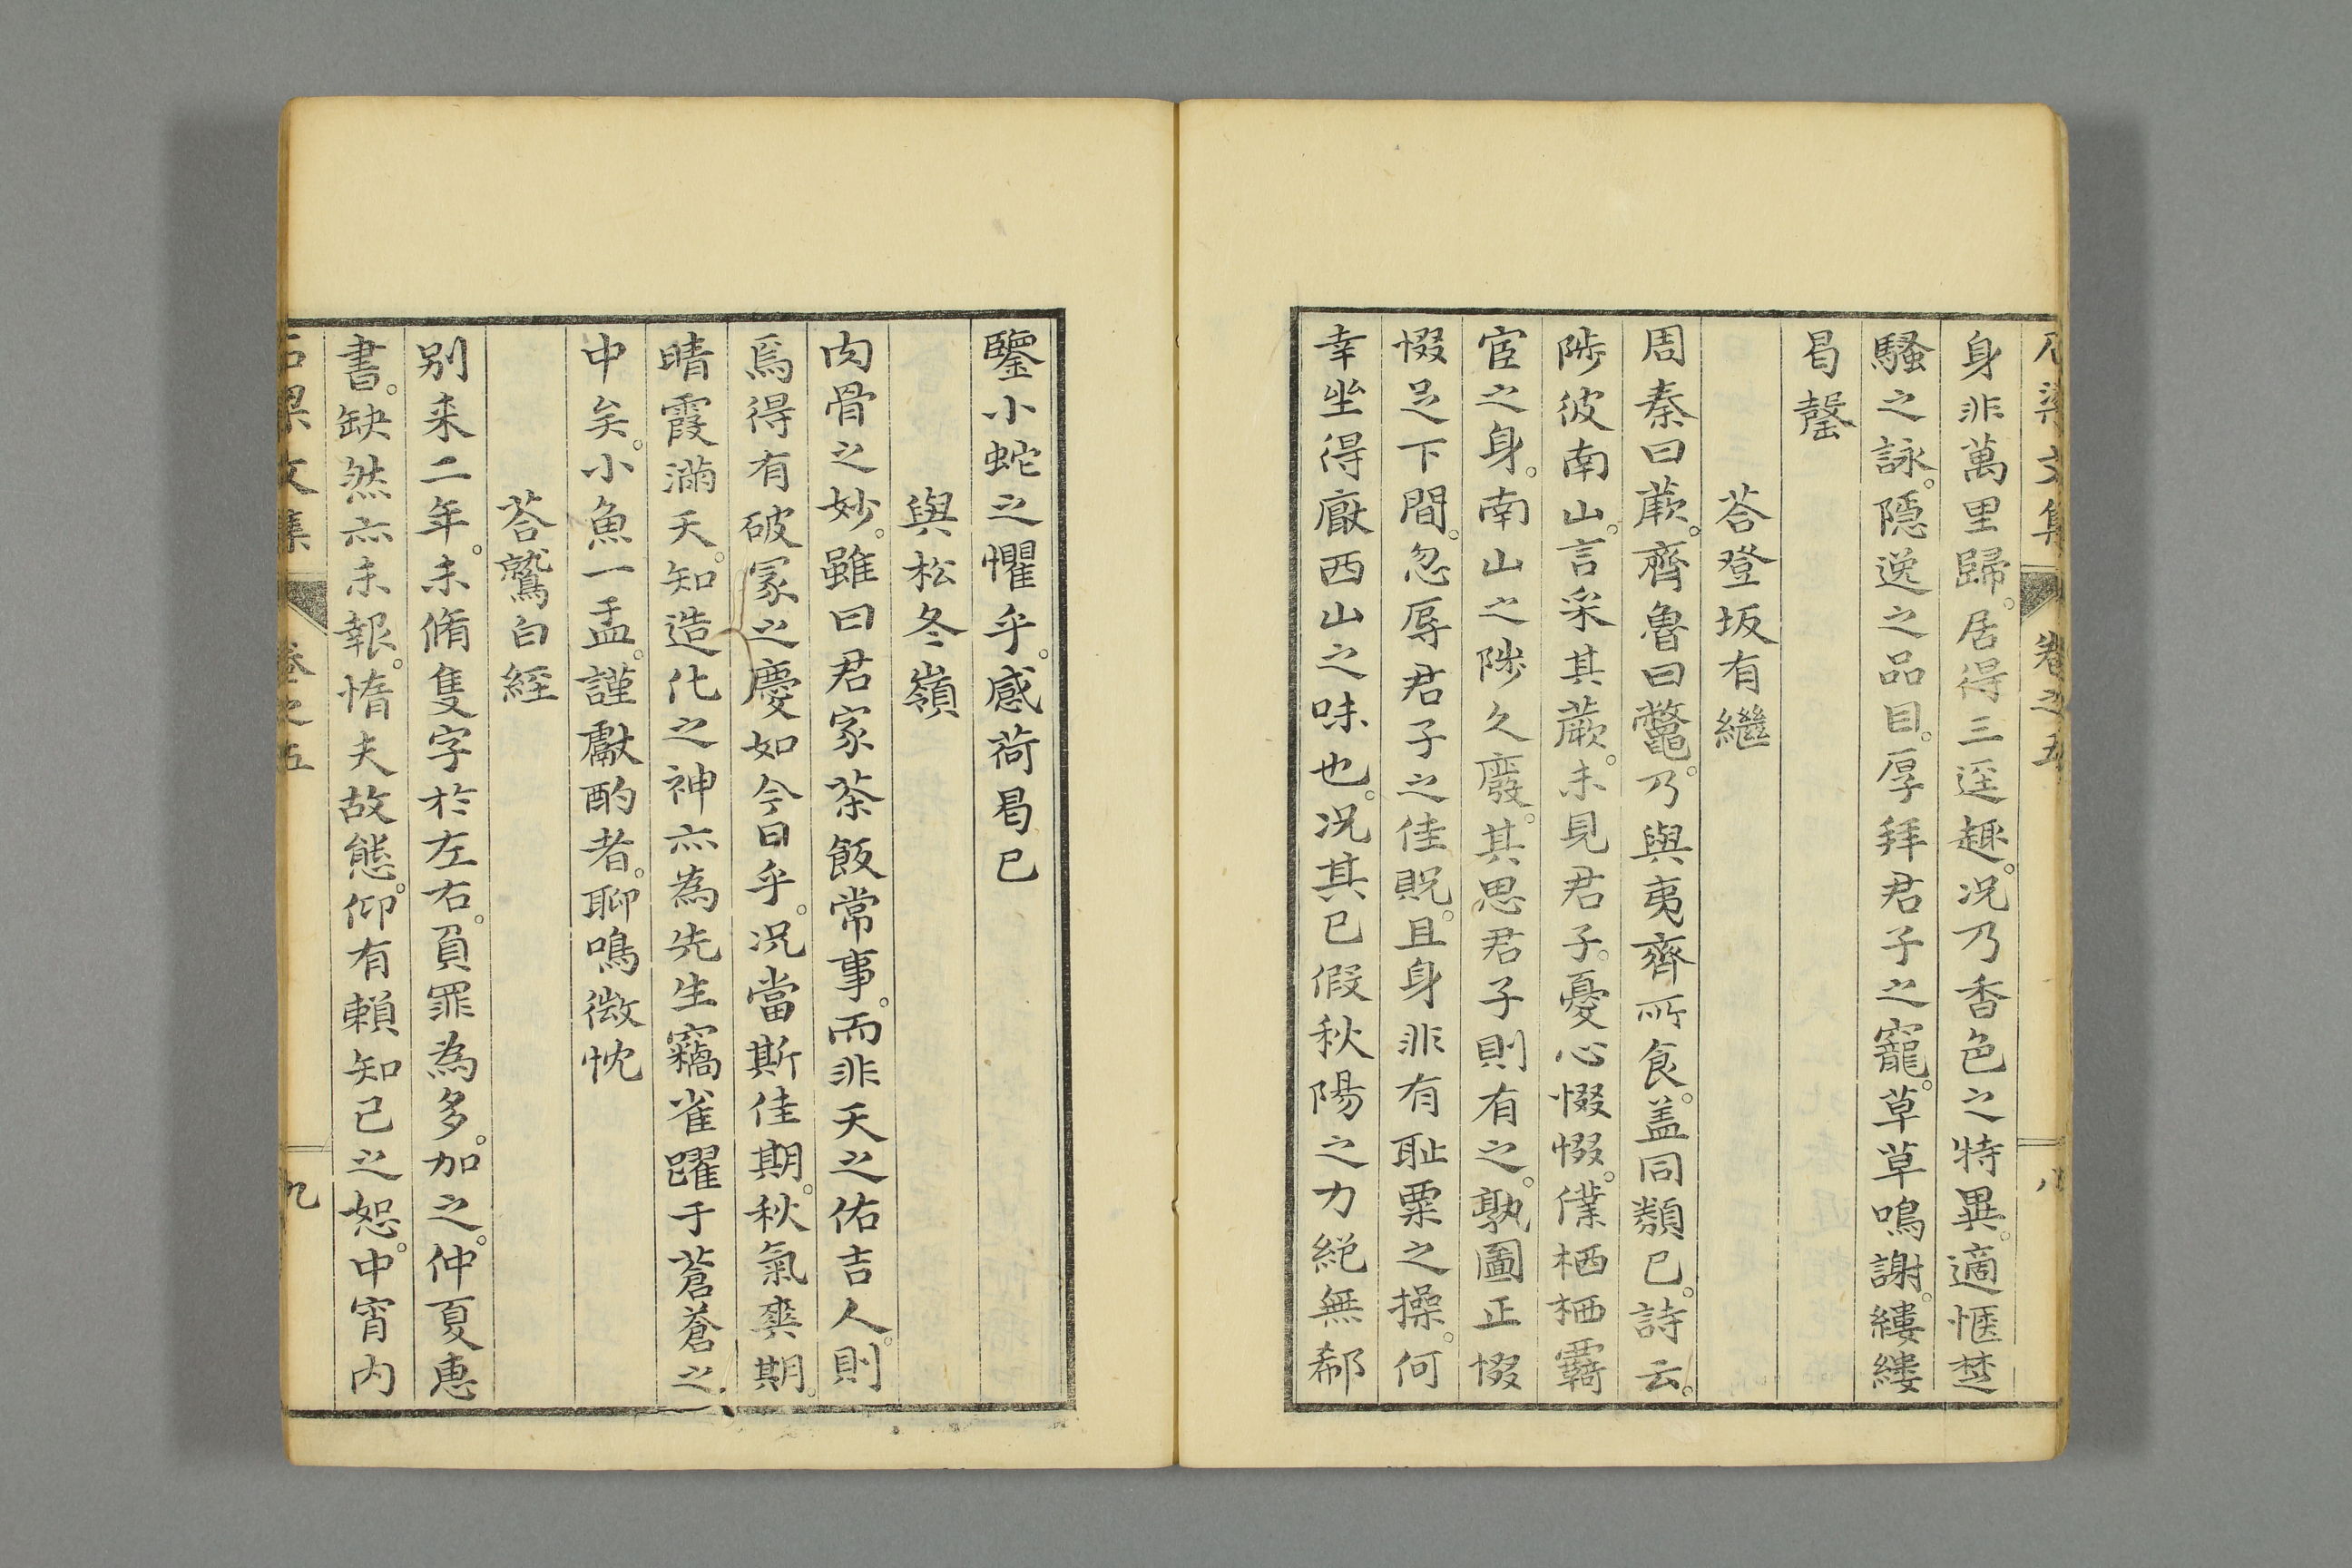 身非萬里歸。居得三逕趣。况乃香色之特異。適愜楚
騷之詠。隱逸之品目。厚拜君子之寵。草草鳴謝。縷縷
曷罄
荅登坂有繼
周秦曰蕨。齊魯曰虌。乃與夷齊所食。盖同類已。詩云。
陟彼南山。言采其蕨。未見君子。憂心惙惙。僕栖栖覊
宦之身。南山之陟久廢。其思君子則有之。孰圖正惙
惙之下間。忽辱君子之佳貺。且身非有耻粟之操。何
幸坐得厭西山之味也。况其已假秋陽之力絕無郗
鑒小蛇之懼乎。感荷曷已
與松冬嶺
肉骨之妙。雖曰君家茶飯常事。而非天之佑吉人。則
焉得有破冢之慶如今日乎。况當斯佳期。秋氣爽期。
晴霞滿天。知造化之神亦為先生竊雀躍于蒼蒼之
中矣。小魚一盂。謹獻酌者。聊鳴微忱
荅鷲白經
別来二年。未脩隻字於左右。負罪為多。加之。仲夏惠
書。缺然亦未報。惰夫故態。仰有賴知己之恕。中宵内
文集 卷之五 九